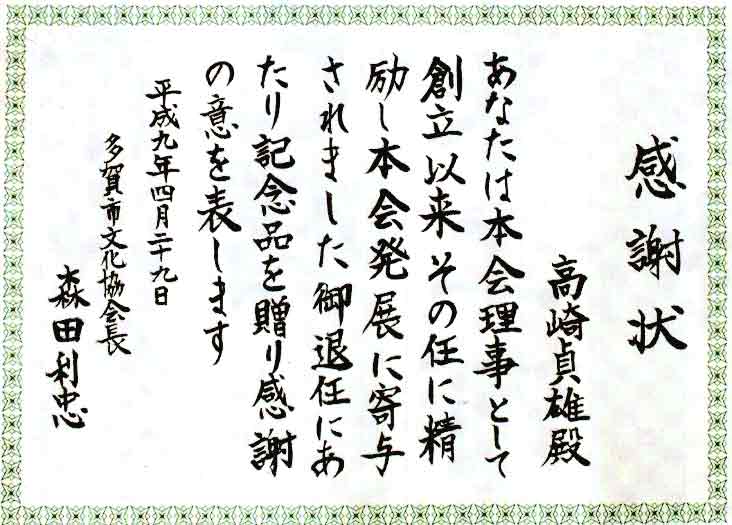 感謝状
高崎貞雄殿
あなたは本会理事として
創立以来その任に精
励し本会発展に寄与
されました御退任にあ
たり記念品を贈り感謝
の意を表します
平成九年四月二十九日
多賀市文化協会長
森田利忠